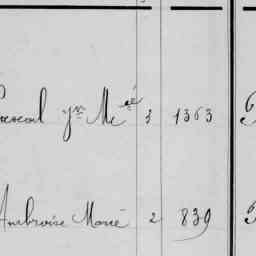 Pascal Jn Me 3 1363
Ambroise Marie 2 839